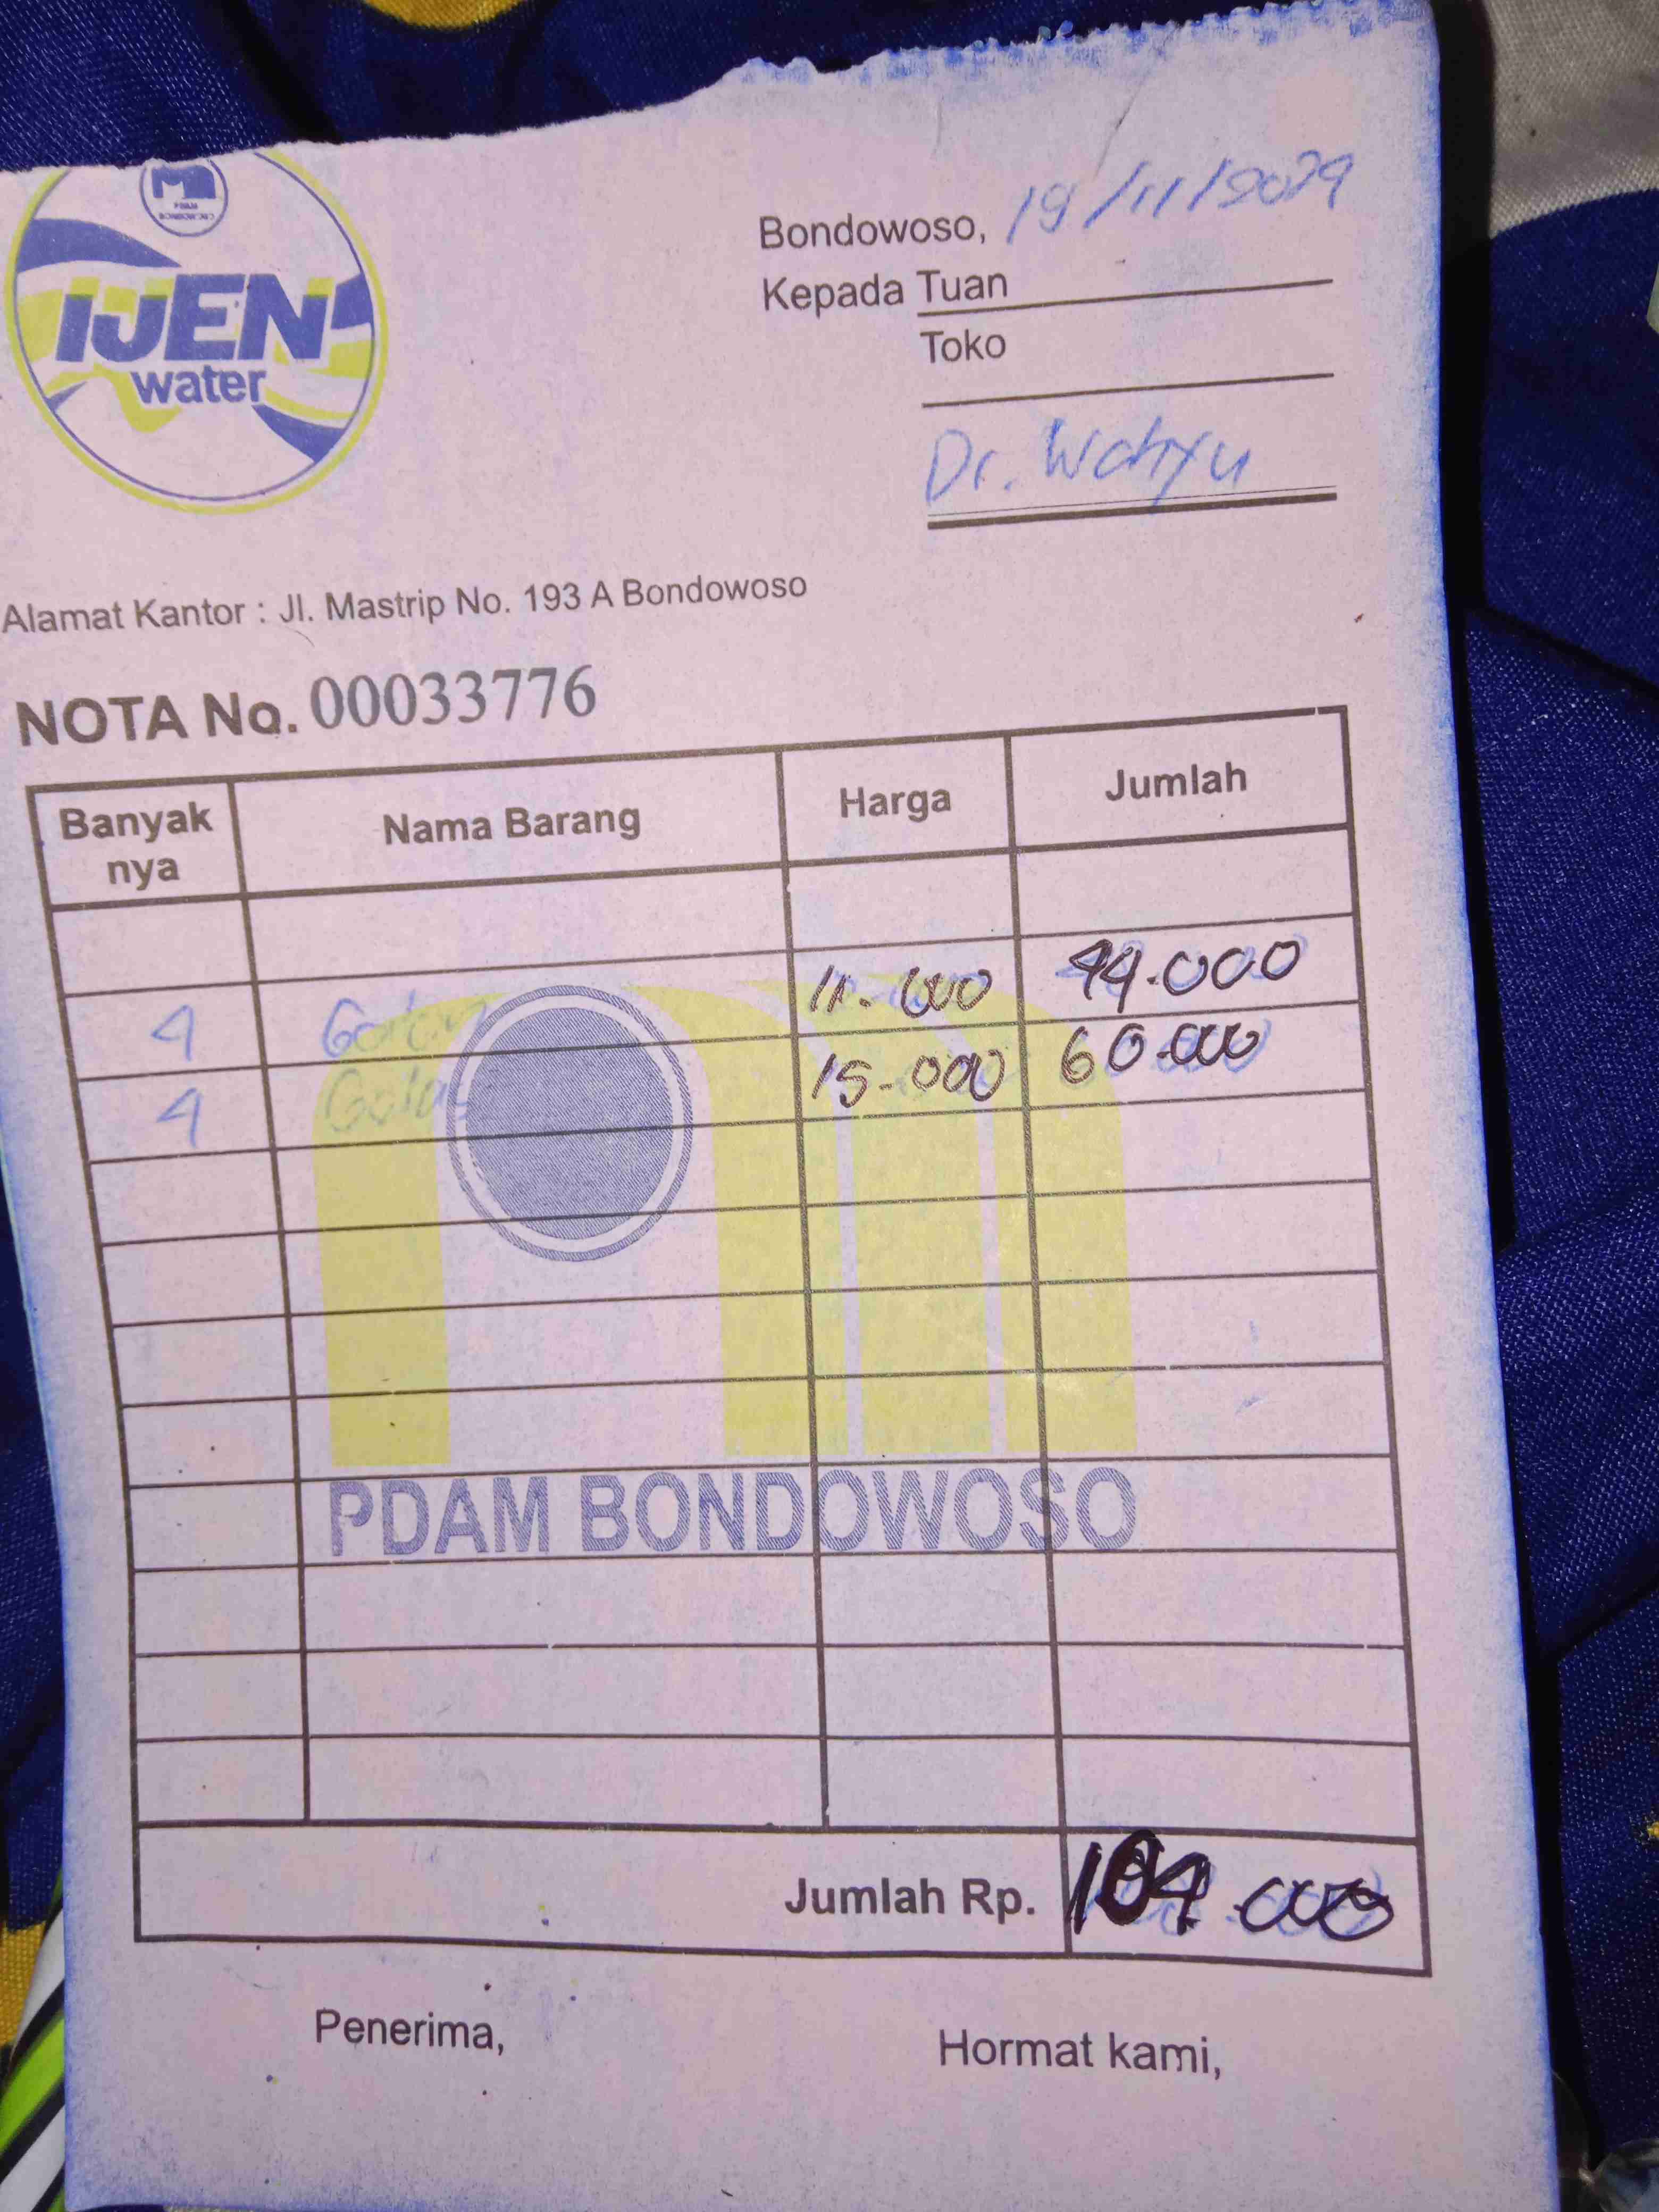 IJEN
water
Bondowoso, 19/11/2024
Kepada Tuan
Toko
Dr. Wahyu
Alamat Kantor : Jl. Mastrip No. 193 A Bondowoso
NOTA No. 00033776
Banyak nya Nama Barang Harga Jumlah
4 Galon 11.000 44.000
4 Galon 15.000 60.000
PDAM BONDOWOSO
Jumlah Rp. 104.000
Penerima, Hormat kami,